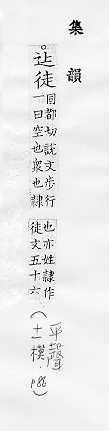 集韻
𨑒徒
同都切說文步行
一曰空也衆也隸
也亦姓隸作
徒文五十六
(平聲
十一模. p88)